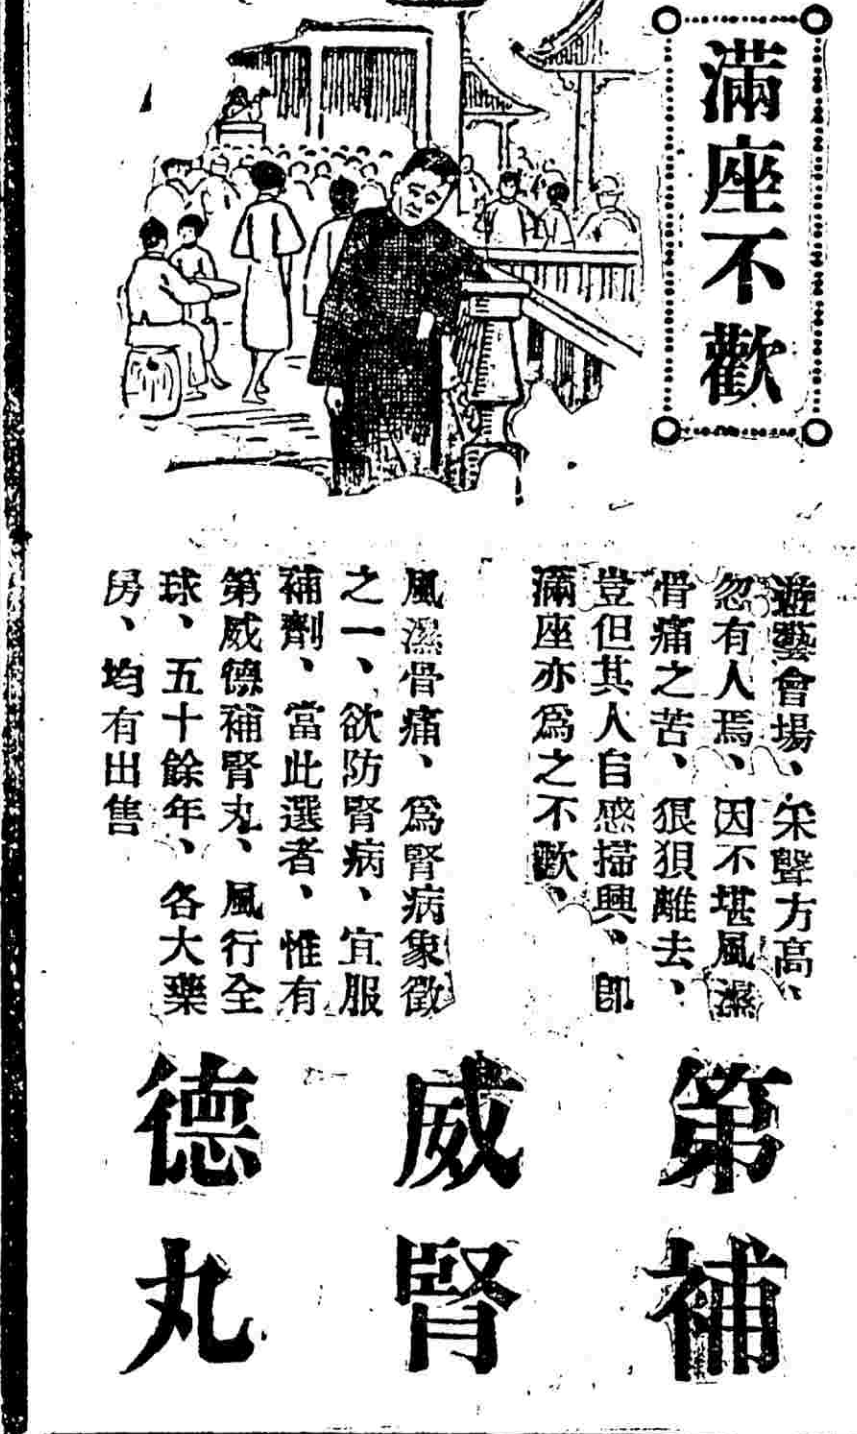 滿座不歡
遊藝會場、采聲方高、
忽有人焉、因不堪風濕
骨痛之苦、狠狽離去、
豈但其人自感掃興、卽
滿座亦爲之不歡、
風濕骨痛、爲腎病象徵
之一、欲防腎病、宜服
補劑、當此選者、惟有
第威德補腎丸、風行全
球、五十餘年、各大藥
房、均有出售
第威德
補腎丸